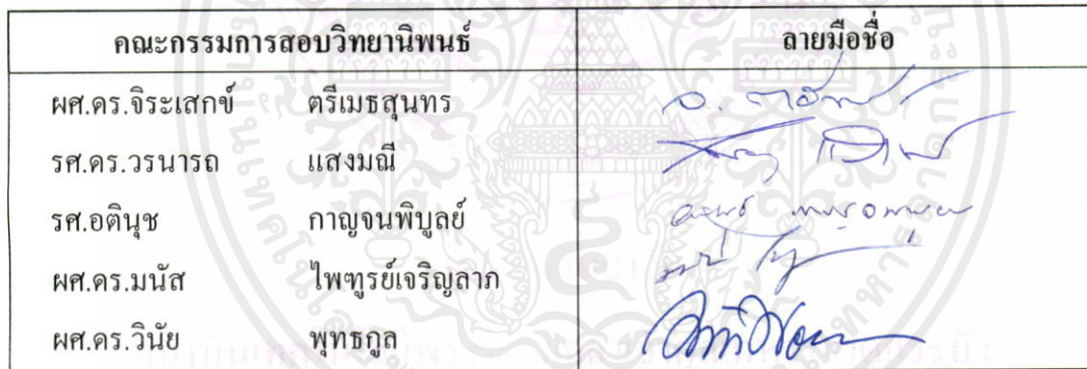 คณะกรรมการสอบวิทยานิพนธ์ ลายมือชื่อ
ผศ.ดร.จิระเสกข์ ตรีเมธสุนทร
รศ.ดร.วรนารถ แสงมณี
รศ.อตินุช กาญจนพิบูลย์
ผศ.ดร.มนัส ไพฑูรย์เจริญลาภ
ผศ.ดร.วินัย พุทธกูล